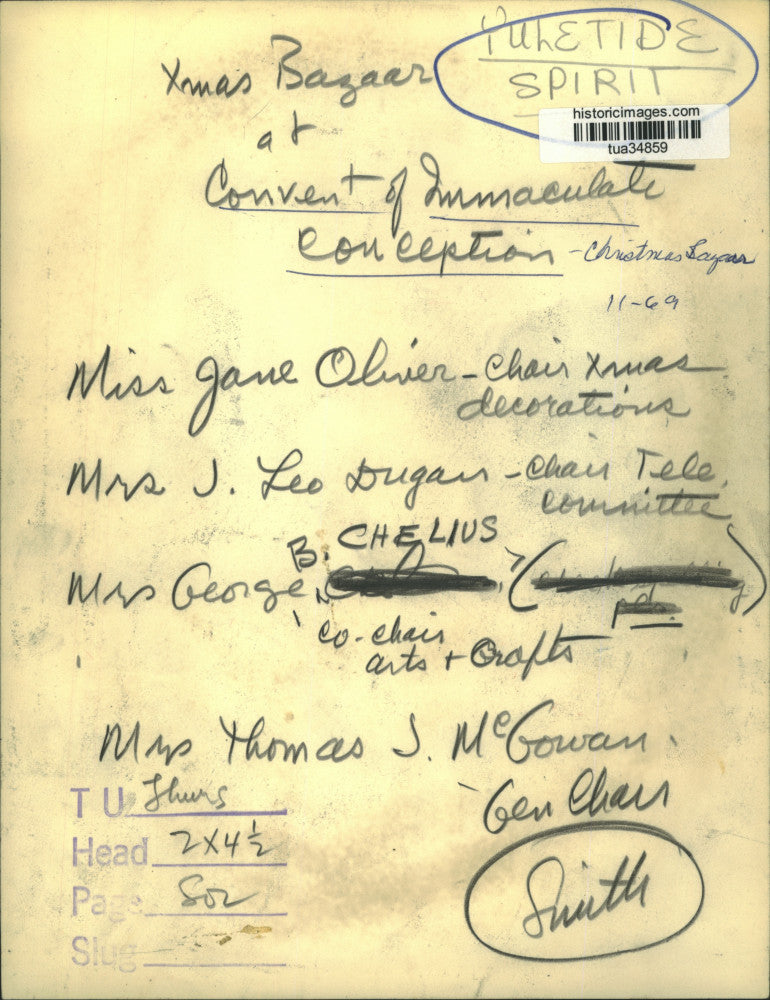 YULETIDE
SPIRIT
Xmas Bazaar
at
Convent of Immaculate
Conception - Christmas Bazaar
11-69
historicimages.com
tua34859
Miss Jane Oliver - Chair Xmas
decorations
Mrs J. Leo Dugan - Chair Tele.
Committee
B. CHELIUS
Mrs George
co-chair
arts + Crafts
Mrs Thomas J. McGowan.
Gen Chair
T U Thurs
Head 2x4½
Page Soc
Slug
Smith